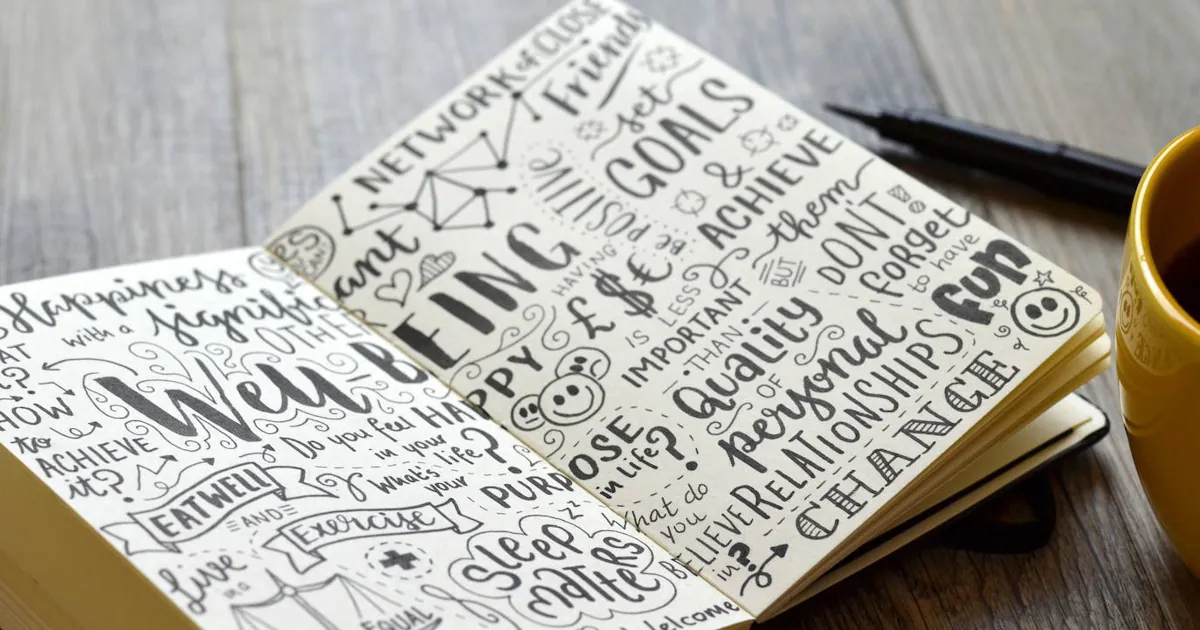 Happiness
with a
significant
OTHER
HOW
to
ACHIEVE
it?
Well-BEING
Do you feel HAPPY
in your
life?
What's
your
PURPOSE
in life?
EATWELL
AND
Exercise
Live
in a
EQUAL
SLEEP
MATTERS
Welcome
CHANGE
YES
CAN
NETWORK of CLOSE
Friends
set
GOALS
&
ACHIEVE
them
BUT
DON'T
forget
to have
fun
BE POSITIVE
HAVING
£ $ €
IS LESS
IMPORTANT
THAN
QUALITY
OF
personal
RELATIONSHIPS
What do
you
BELIEVE
in?